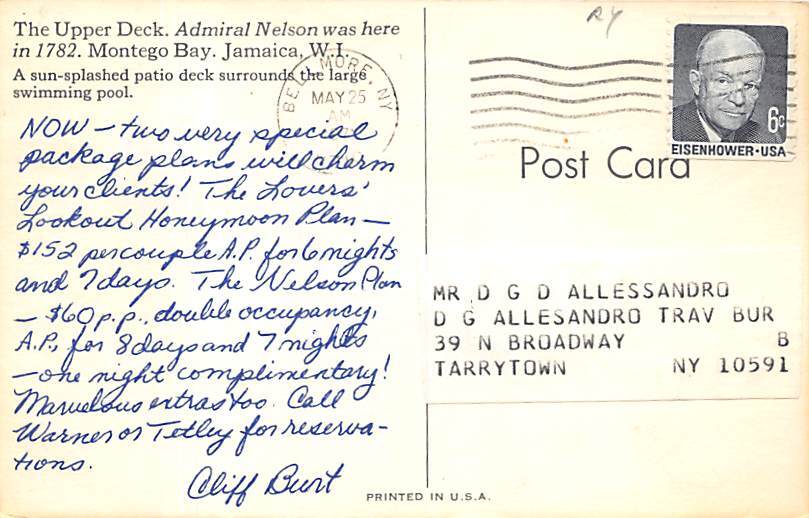 The Upper Deck. Admiral Nelson was here
in 1782. Montego Bay. Jamaica, W.I.
A sun-splashed patio deck surrounds the large
swimming pool.
NOW – two very special
package plans will charm
your clients! The Lovers'
Lookout Honeymoon Plan –
$152 per couple A.P. for 6 nights
and 7 days. The Nelson Plan
– $60 p.p., double occupancy,
A.P., for 8 days and 7 nights
– one night complimentary!
Marvelous extras too. Call
Warner or Tetley for reserva-
tions.
Cliff Burt
MORE, NY
MAY 25
AM
RY
6c
EISENHOWER·USA
Post Card
MR D G D ALLESSANDRO
D G ALLESANDRO TRAV BUR
39 N BROADWAY B
TARRYTOWN NY 10591
PRINTED IN U.S.A.